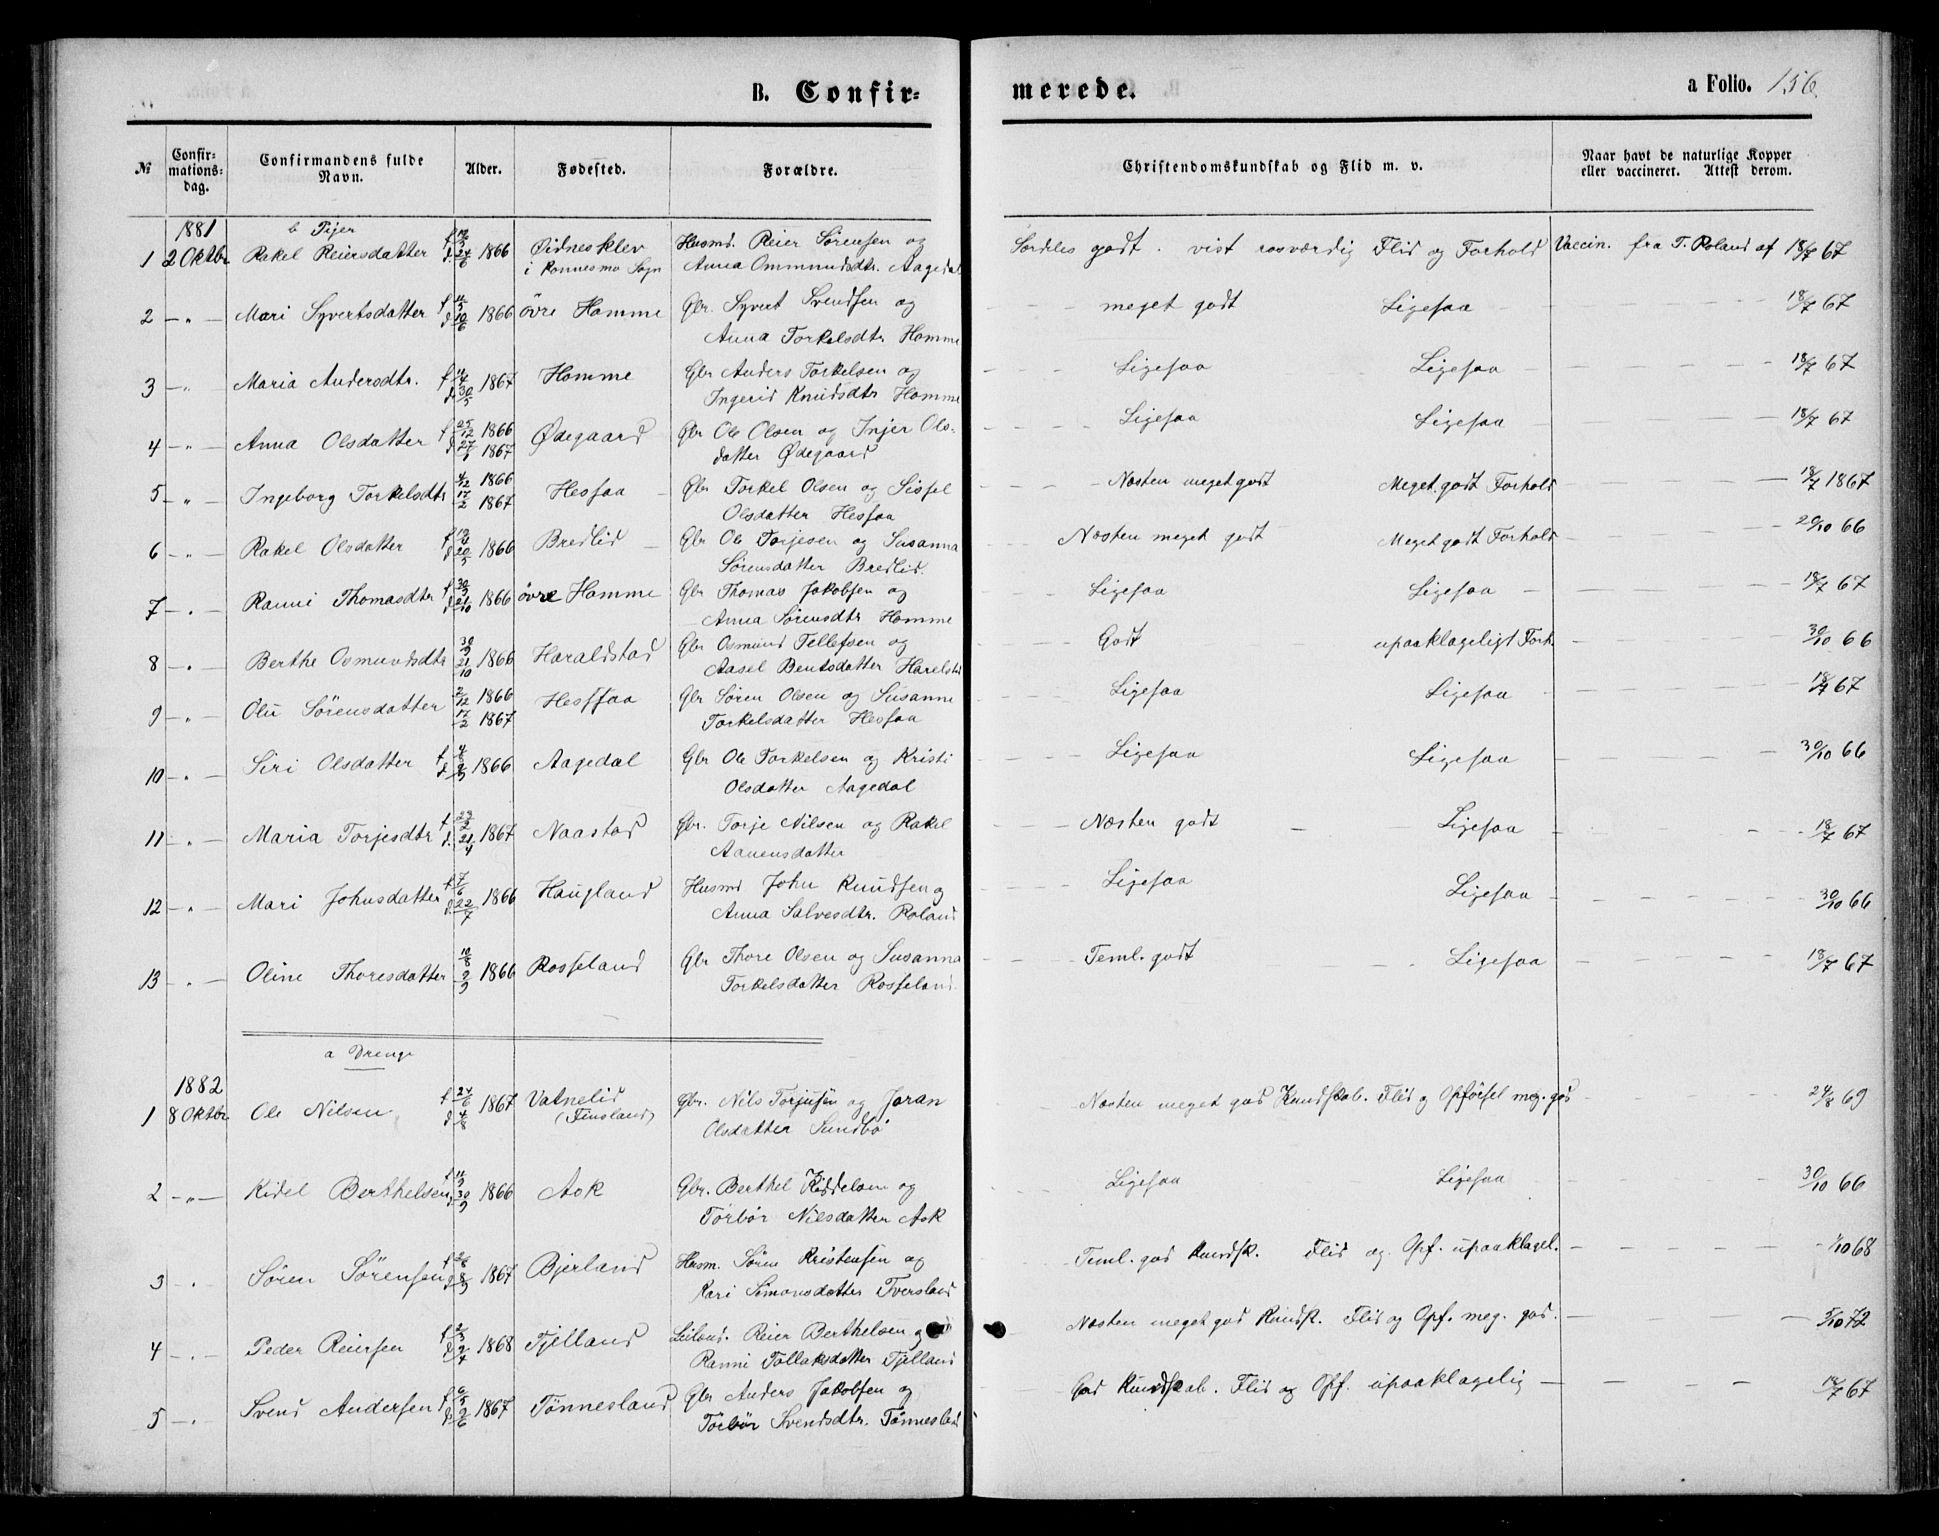 B. Confir= merede. a Folio. 156.
№ Confir-mations-dag. Confirmandens fulde Navn. Alder. Fødested. Forældre. Christendomskundskab og Flid m. v. Naar havt de naturlige Kopper eller vaccineret. Attest derom.
1881 b Piger
1 2 Oktbr Rakel Reiersdatter 1866 Øidnesklev Husmd. Reier Sørensen og Særdeles godt. vist rosværdig Flid og Forhold Vaccin. fra T. Roland af 18/7 67
i Sogn Anna Ommundsdtr. Aagedal
2 — „ — Mari Syvertsdatter 1866 øvre Homme Gbr. Syvert Svendsen og meget godt Ligesaa 18/7 67
Anna Torkelsdtr Homme
3 — „ — Maria Andersdtr. 1867 Homme Gbr Anders Torkelsen og Ligesaa Ligesaa 18/7 67
Ingerid Knudsdtr Homme
4 — „ — Anna Olsdatter 25/12 1866 Ødegaard Gbr Ole Olsen og Injer Ols- Ligesaa Ligesaa 18/7 67
1867 datter Ødegaard
5 — „ — Ingeborg Torkelsdtr 1866 Hesfaa Gbr Torkel Olsen og Sissel Næsten meget godt Meget godt Forhold 18/7 1867
17/2 1867 Olsdatter Hesfaa
6 — „ — Rakel Olsdatter 1866 Bredlid Gbr Ole Torjesen og Susanna Næsten meget godt Meget godt Forhold 66
Sørensdatter Bredlid.
7 — „ — Ranni Thomasdtr 1866 øvre Homme Gbr Thomas Jakobsen og Ligesaa Ligesaa 18/7 67
Anna Sørensdtr Homme
8 — „ — Berthe Osmundsdtr 30/9 21/10 1866 Haraldstad Gbr Osmund Tellefsen og Godt upaaklageligt Forh. 30/10 66
Aasel Bentsdatter Harelstad
9 — „ — Olu Sørensdatter 2/12 1866 Hesffaa Gbr Søren Olsen og Susanne Ligesaa Ligesaa 18/7 67
17/2 1867 Torkelsdatter Hesfaa
10 — „ — Siri Olsdatter 1866 Aagedal Gbr Ole Torkelsen og Kristi Ligesaa Ligesaa 30/10 66
Olsdatter Aagedal
11 — „ — Maria Torjesdtr 21/4 1867 Naastad Gbr. Torje Nilsen og Rakel Næsten godt Ligesaa 18/7 67
Aanensdatter
12 — „ — Mari Johnsdatter f 7/6 d. 22/7 1866 Haugland Husmd John Knudsen og Ligesaa Ligesaa 30/10 66
Anna Salvesdtr. Roland
13 — „ — Oline Thoresdatter 10/8 2/9 1866 Rosseland Gbr Thore Olsen og Susanna Teml. godt Ligesaa 18/7 67
Torkelsdatter Rosseland.
a Drenge
1882
1 8 Oktbr Ole Nilsen f 24/6 d 4/8 1867 Vatnelid Gbr. Nils Torjusen og Joran Næsten meget god Kundskab. Flid og Opførsel meg. god 24/8 69
(Finsland) Olsdatter Sundbø
2 — „ — Kidel Berthelsen 30/9 1866 Ask Gbr. Berthel Kiddelsen og Ligesaa Ligesaa 30/10 66
Tørbør Nilsdatter Ask
3 — „ Søren Sørensen 1867 Bjerland Husm. Søren Kristensen og Teml. god Kundsk. Flid og Opf. upaaklagel. /10 68
Kari Simonsdatter Tversland
4 — „ — Peder Reiersen f 2/3 d 2/4 1868 Tjelland Leilend. Reier Berthelsen og Næsten meget god Kundsk. Flid og Opf. meg. god. 5/10 72
Ranni Tollaksdatter Tjelland
5 — „ Svend Andersen 1867 Tønnesland Gbr Anders Jakobsen og God Kundskab. Flid og Opf. upaaklagelig 18/7 67
Tørbør Svendsdtr. Tønnesland